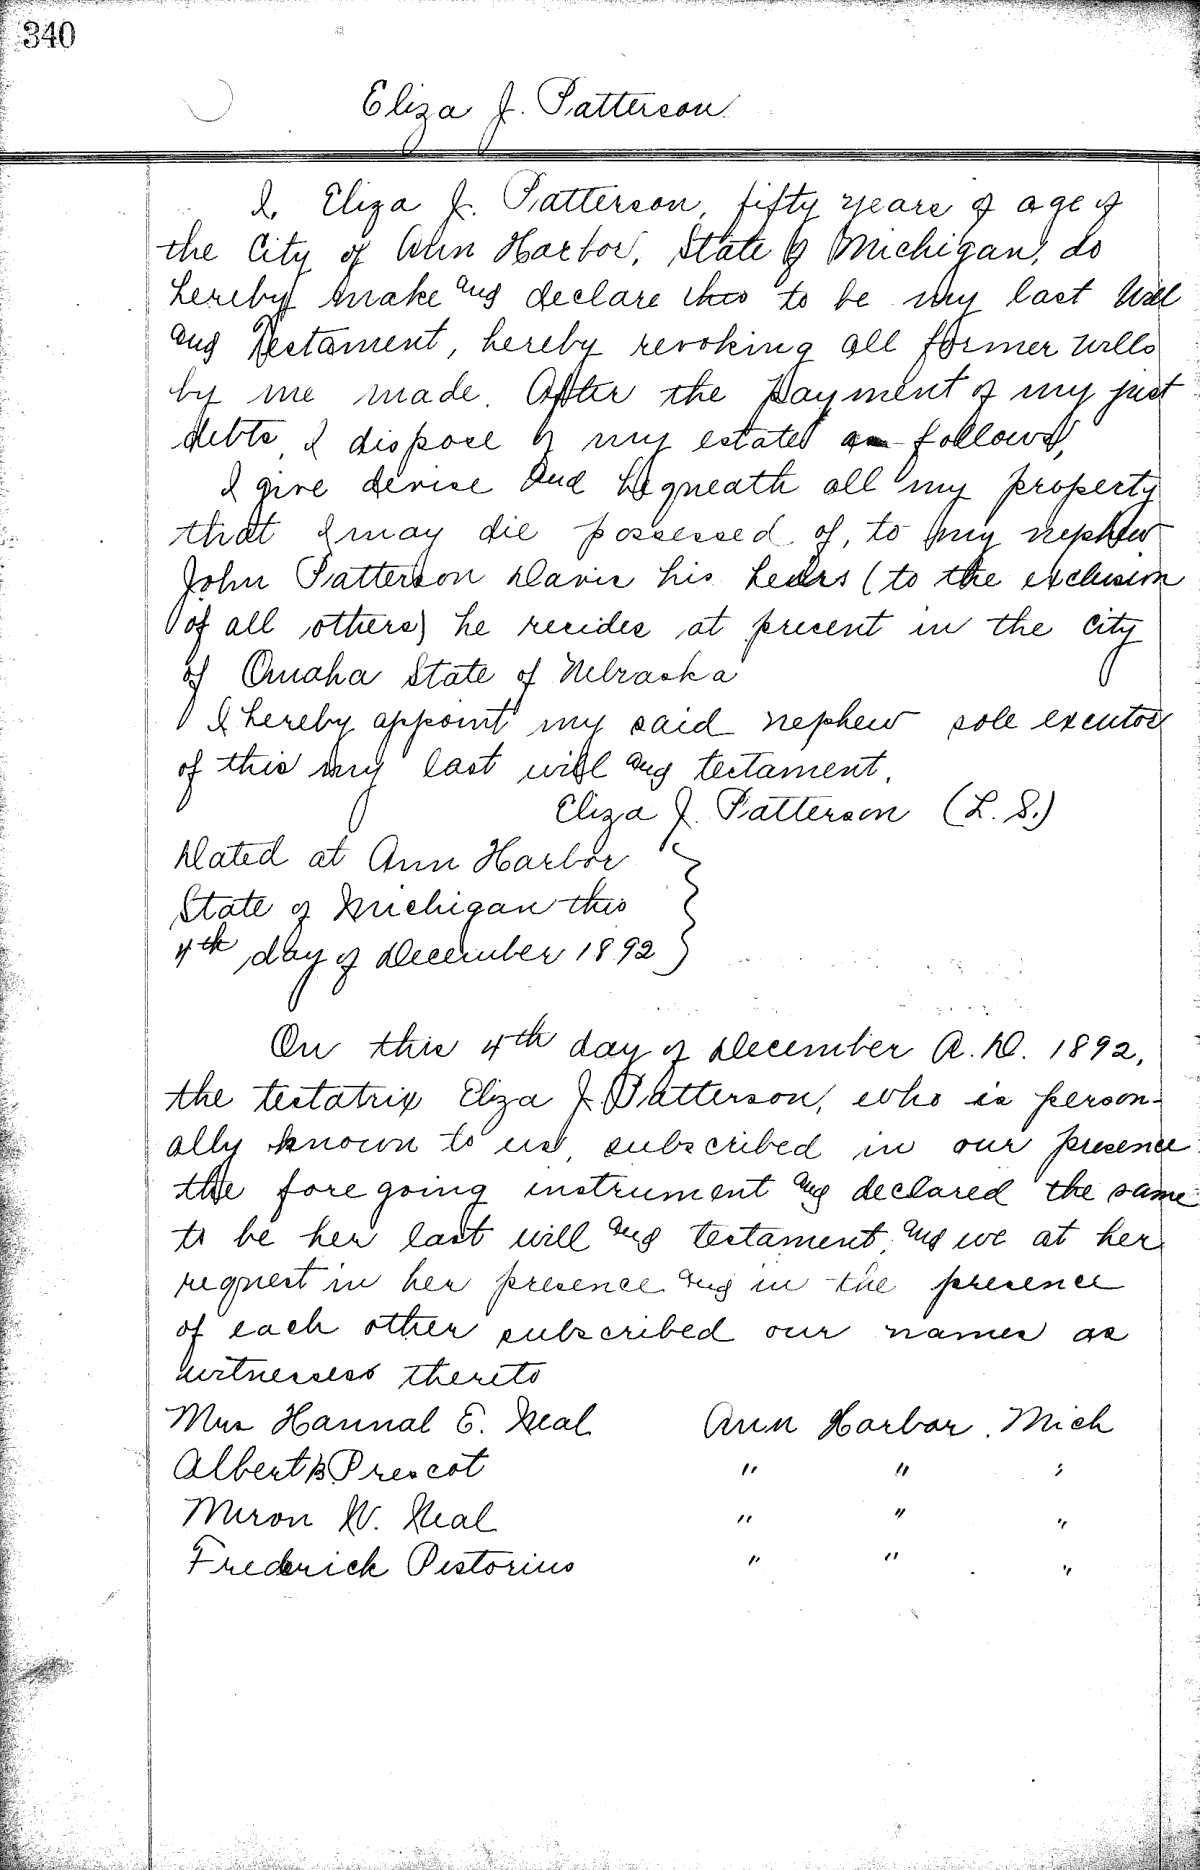 340
Eliza J. Patterson
I, Eliza J. Patterson, fifty years of age of
the City of Ann Harbor, State of Michigan, do
hereby make and declare this to be my last Will
and Testament, hereby revoking all former wills
by me made. After the payment of my just
debts, I dispose of my estate as follows,
I give devise and bequeath all my property
that I may die possessed of, to my nephew
John Patterson Davis his heirs (to the exclusion
of all others) he resides at present in the city
of Omaha State of Nebraska
I hereby appoint my said nephew sole executor
of this my last will and testament.
Eliza J. Patterson (L. S.)
Dated at Ann Harbor
State of Michigan this
4th day of December 1892
On this 4th day of December A.D. 1892,
the testatrix Eliza J. Patterson, who is person-
ally known to us, subscribed in our presence
the foregoing instrument and declared the same
to be her last will and testament, and we at her
request in her presence and in the presence
of each other subscribed our names as
witnesses thereto
Mrs Hannal E. Neal Ann Harbor, Mich
Albert B Prescot " " "
Miron W. Neal " " "
Frederick Pistorius " " "